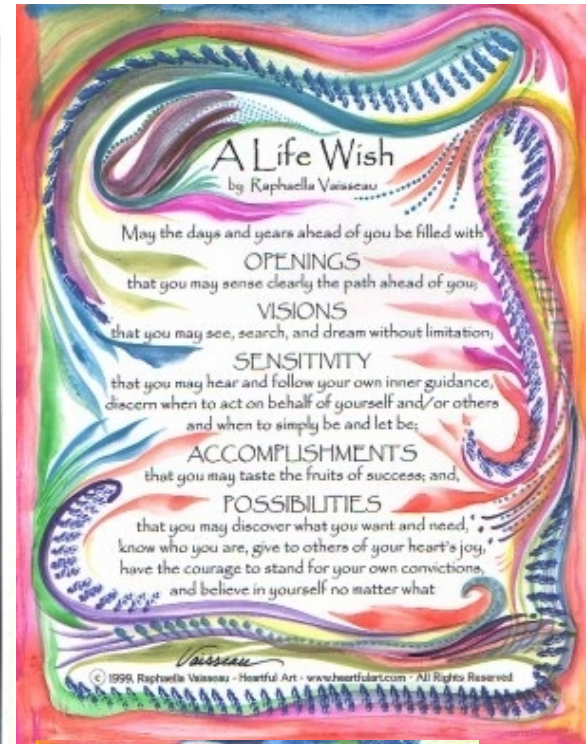 A Life Wish
by Raphaella Vaisseau
May the days and years ahead of you be filled with
OPENINGS
that you may sense clearly the path ahead of you;
VISIONS
that you may see, search, and dream without limitation;
SENSITIVITY
that you may hear and follow your own inner guidance,
discern when to act on behalf of yourself and/or others
and when to simply be and let be;
ACCOMPLISHMENTS
that you may taste the fruits of success; and,
POSSIBILITIES
that you may discover what you want and need,
know who you are, give to others of your heart's joy,
have the courage to stand for your own convictions,
and believe in yourself no matter what
Vaisseau
© 1999, Raphaella Vaisseau - Heartful Art - www.heartfulart.com - All Rights Reserved